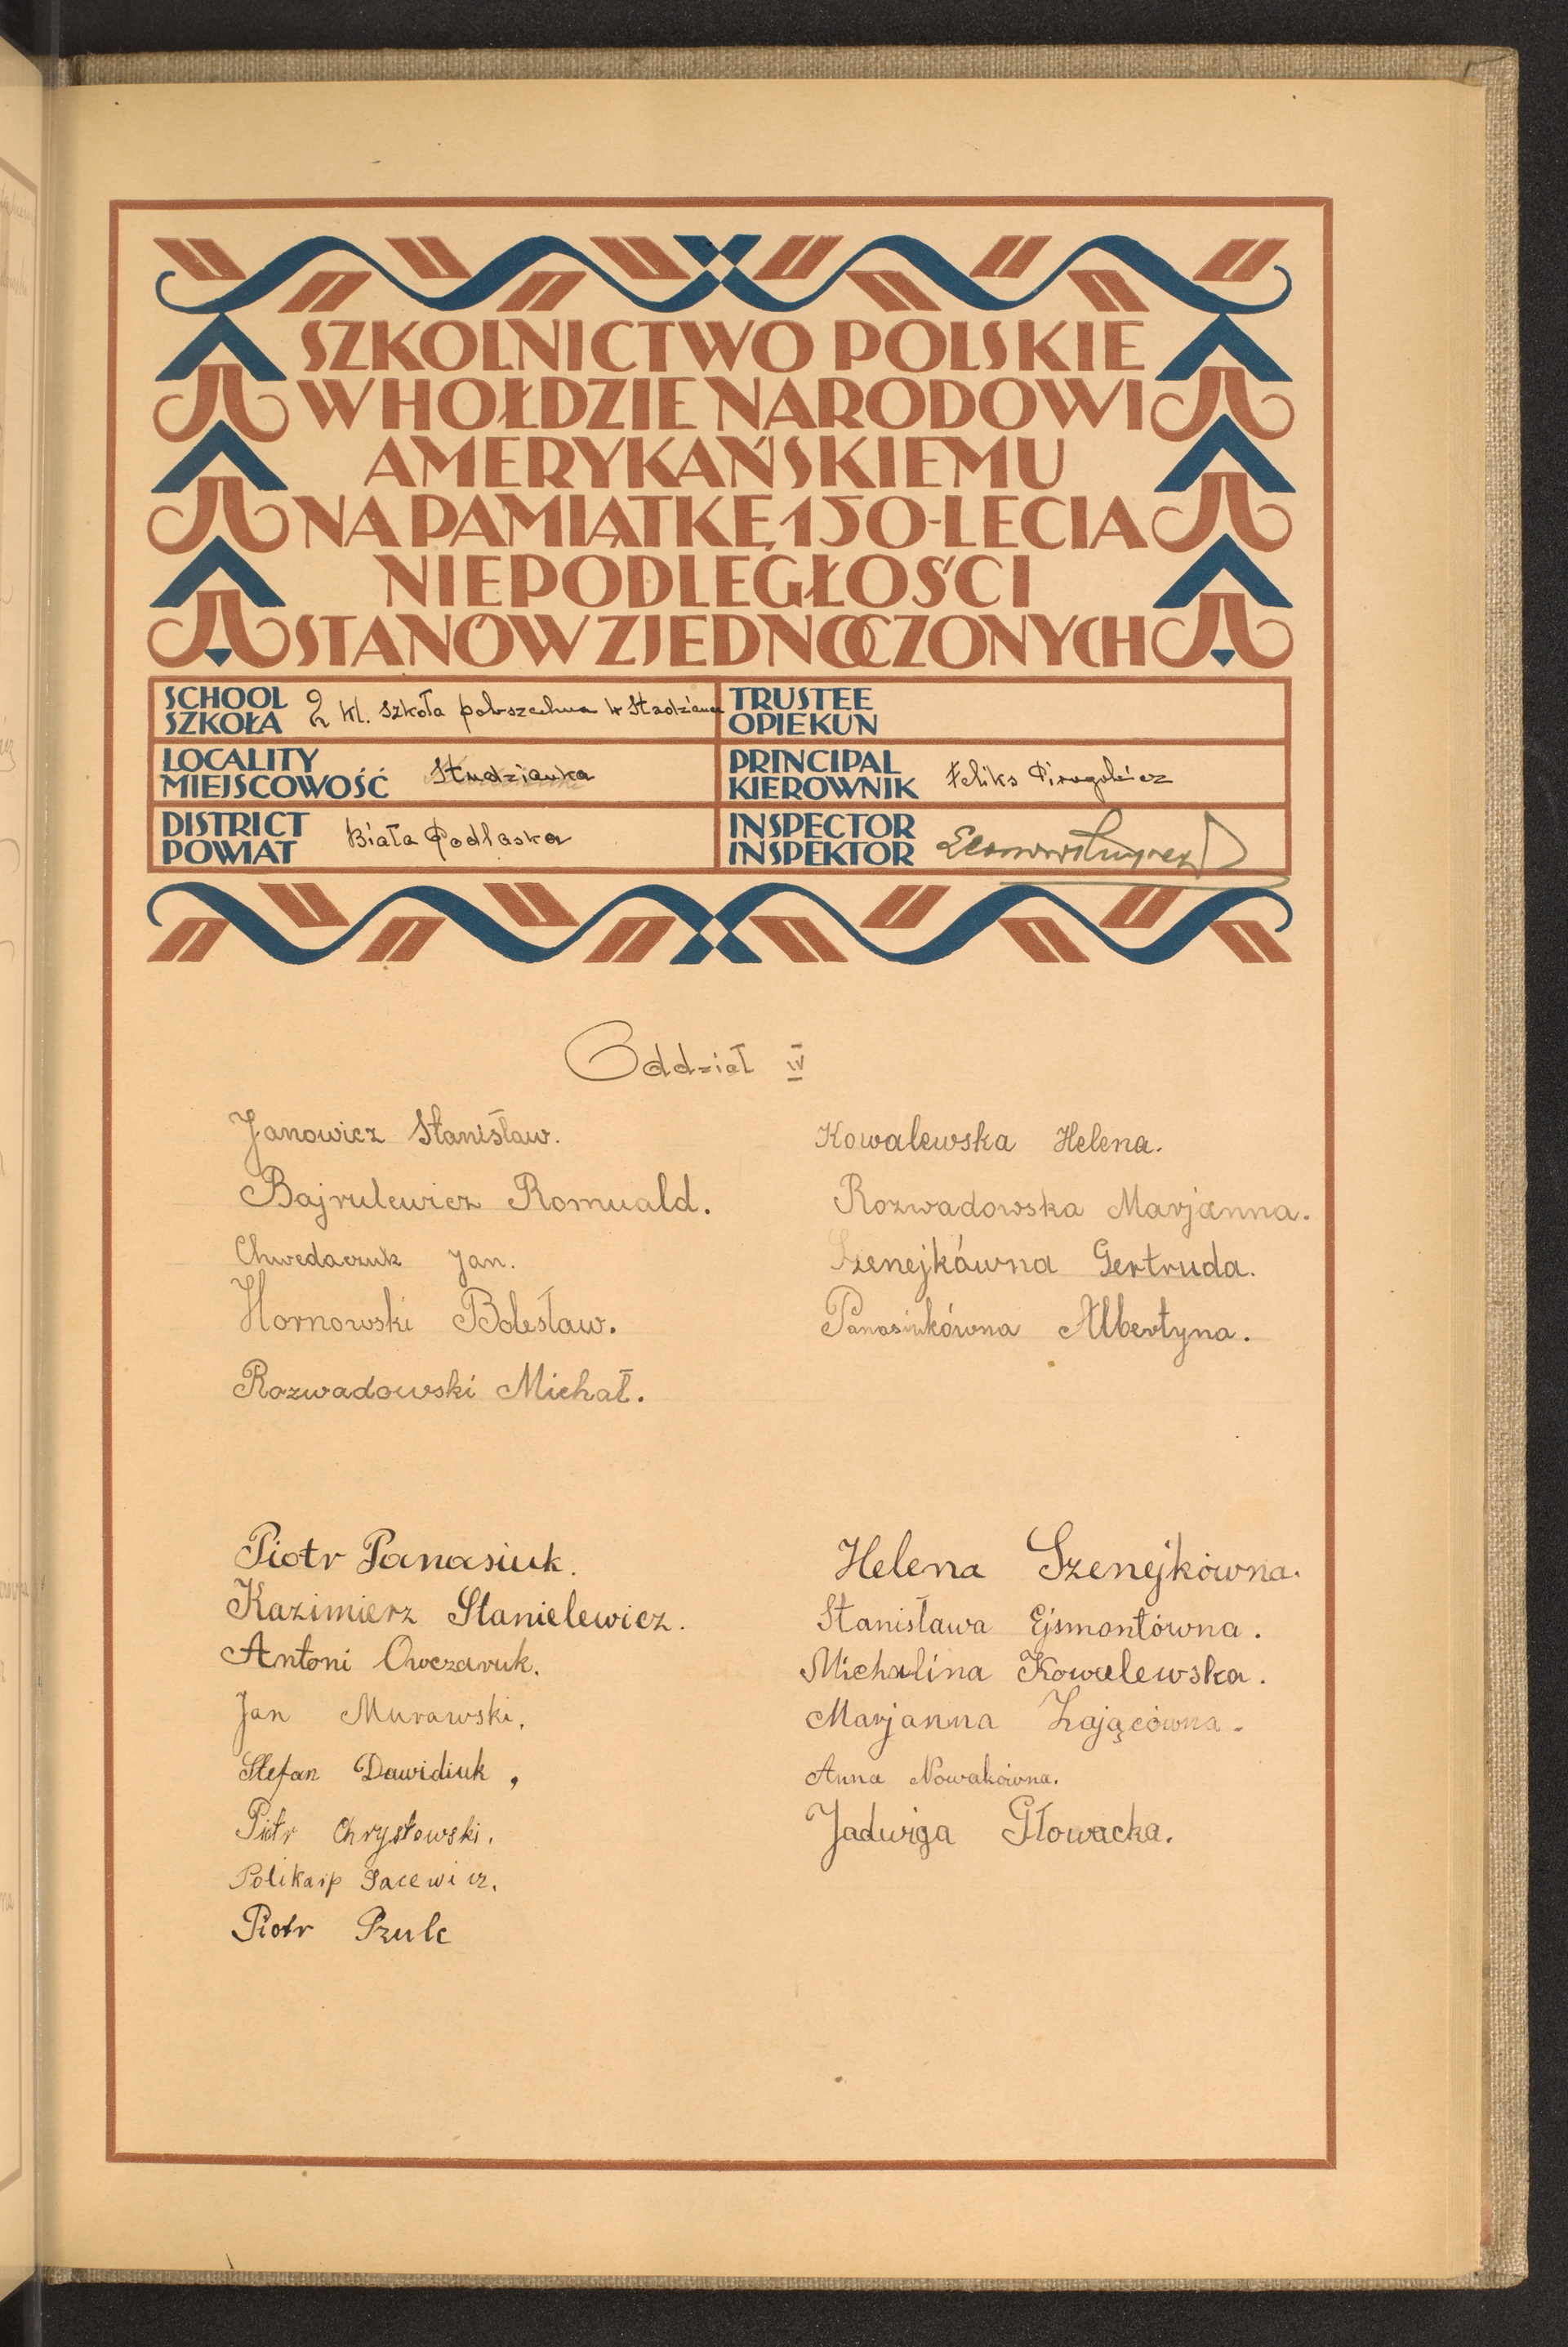 SZKOLNICTWO POLSKIE
W HOŁDZIE NARODOWI
AMERYKAŃSKIEMU
NA PAMIĄTKĘ 150-LECIA
NIEPODLEGŁOŚCI
STANÓW ZJEDNOCZONYCH
SCHOOL
SZKOŁA 2 kl. szkoła powszechna w
TRUSTEE
OPIEKUN
LOCALITY
MIEJSCOWOŚĆ Studzianka
PRINCIPAL
KIEROWNIK Feliks
DISTRICT
POWIAT Biała Podlaska
INSPECTOR
INSPEKTOR
Oddział IV
Janowicz Stanisław.
Bajrulewicz Romuald.
Chwedaczuk Jan.
Hornowski Bolesław.
Rozwadowski Michał.
Kowalewska Helena.
Rozwadowska Marjanna.
Szenejkówna Gertruda.
Panasiukówna Albertyna.
Piotr Panasiuk.
Kazimierz Stanielewicz.
Antoni Owczaruk.
Jan Murawski.
Stefan Dawidiuk,
Piotr Chrystowski.
Polikarp Sacewicz.
Piotr Szulc
Helena Szenejkówna.
Stanisława Ejsmontówna.
Michalina Kowalewska.
Marjanna Zającówna.
Anna Nowakówna.
Jadwiga Głowacka.